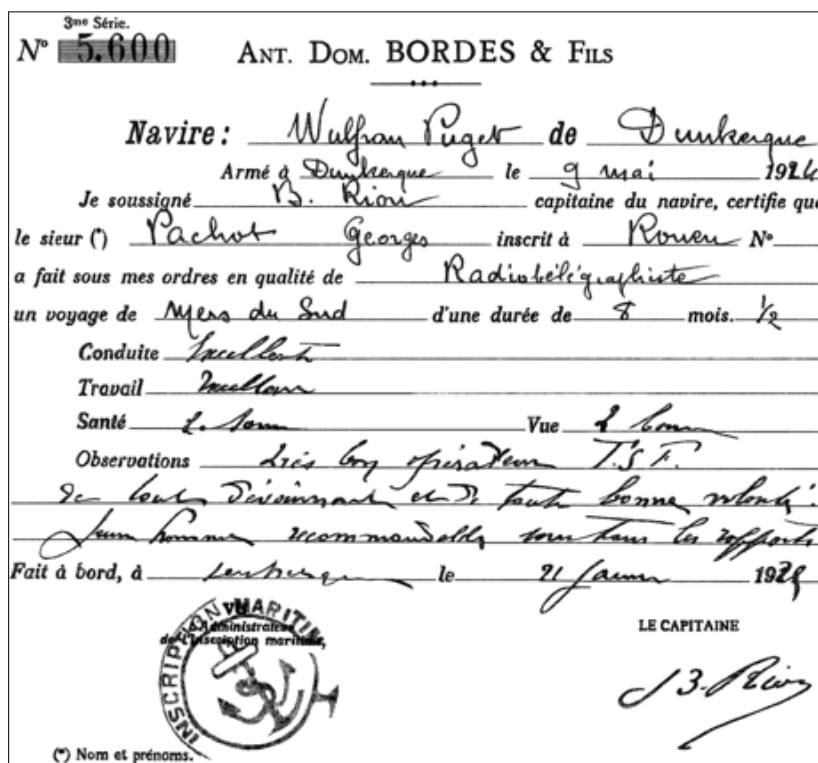 3me Série.
No 5.600 ANT. DOM. BORDES & FILS
Navire : Wulfran Puget de Dunkerque
Armé à Dunkerque le 9 mai 1924
Je soussigné B. Rion capitaine du navire, certifie que
le sieur (*) Pachot Georges inscrit à Rouen No
a fait sous mes ordres en qualité de Radiotélégraphiste
un voyage de Mers du Sud d'une durée de 8 mois. 1/2
Conduite Excellente
Travail Excellent
Santé T. bonne Vue T. bonne
Observations Très bon opérateur T.S.F.
de tout dévouement et de toute bonne volonté.
Jeune homme recommandable sous tous les rapports
Fait à bord, à le 21 janvier 1925
VU
l'Administrateur
de l'Inscription maritime,
LE CAPITAINE
INSCRIPTION MARITIM
J B. Rion
(*) Nom et prénoms.